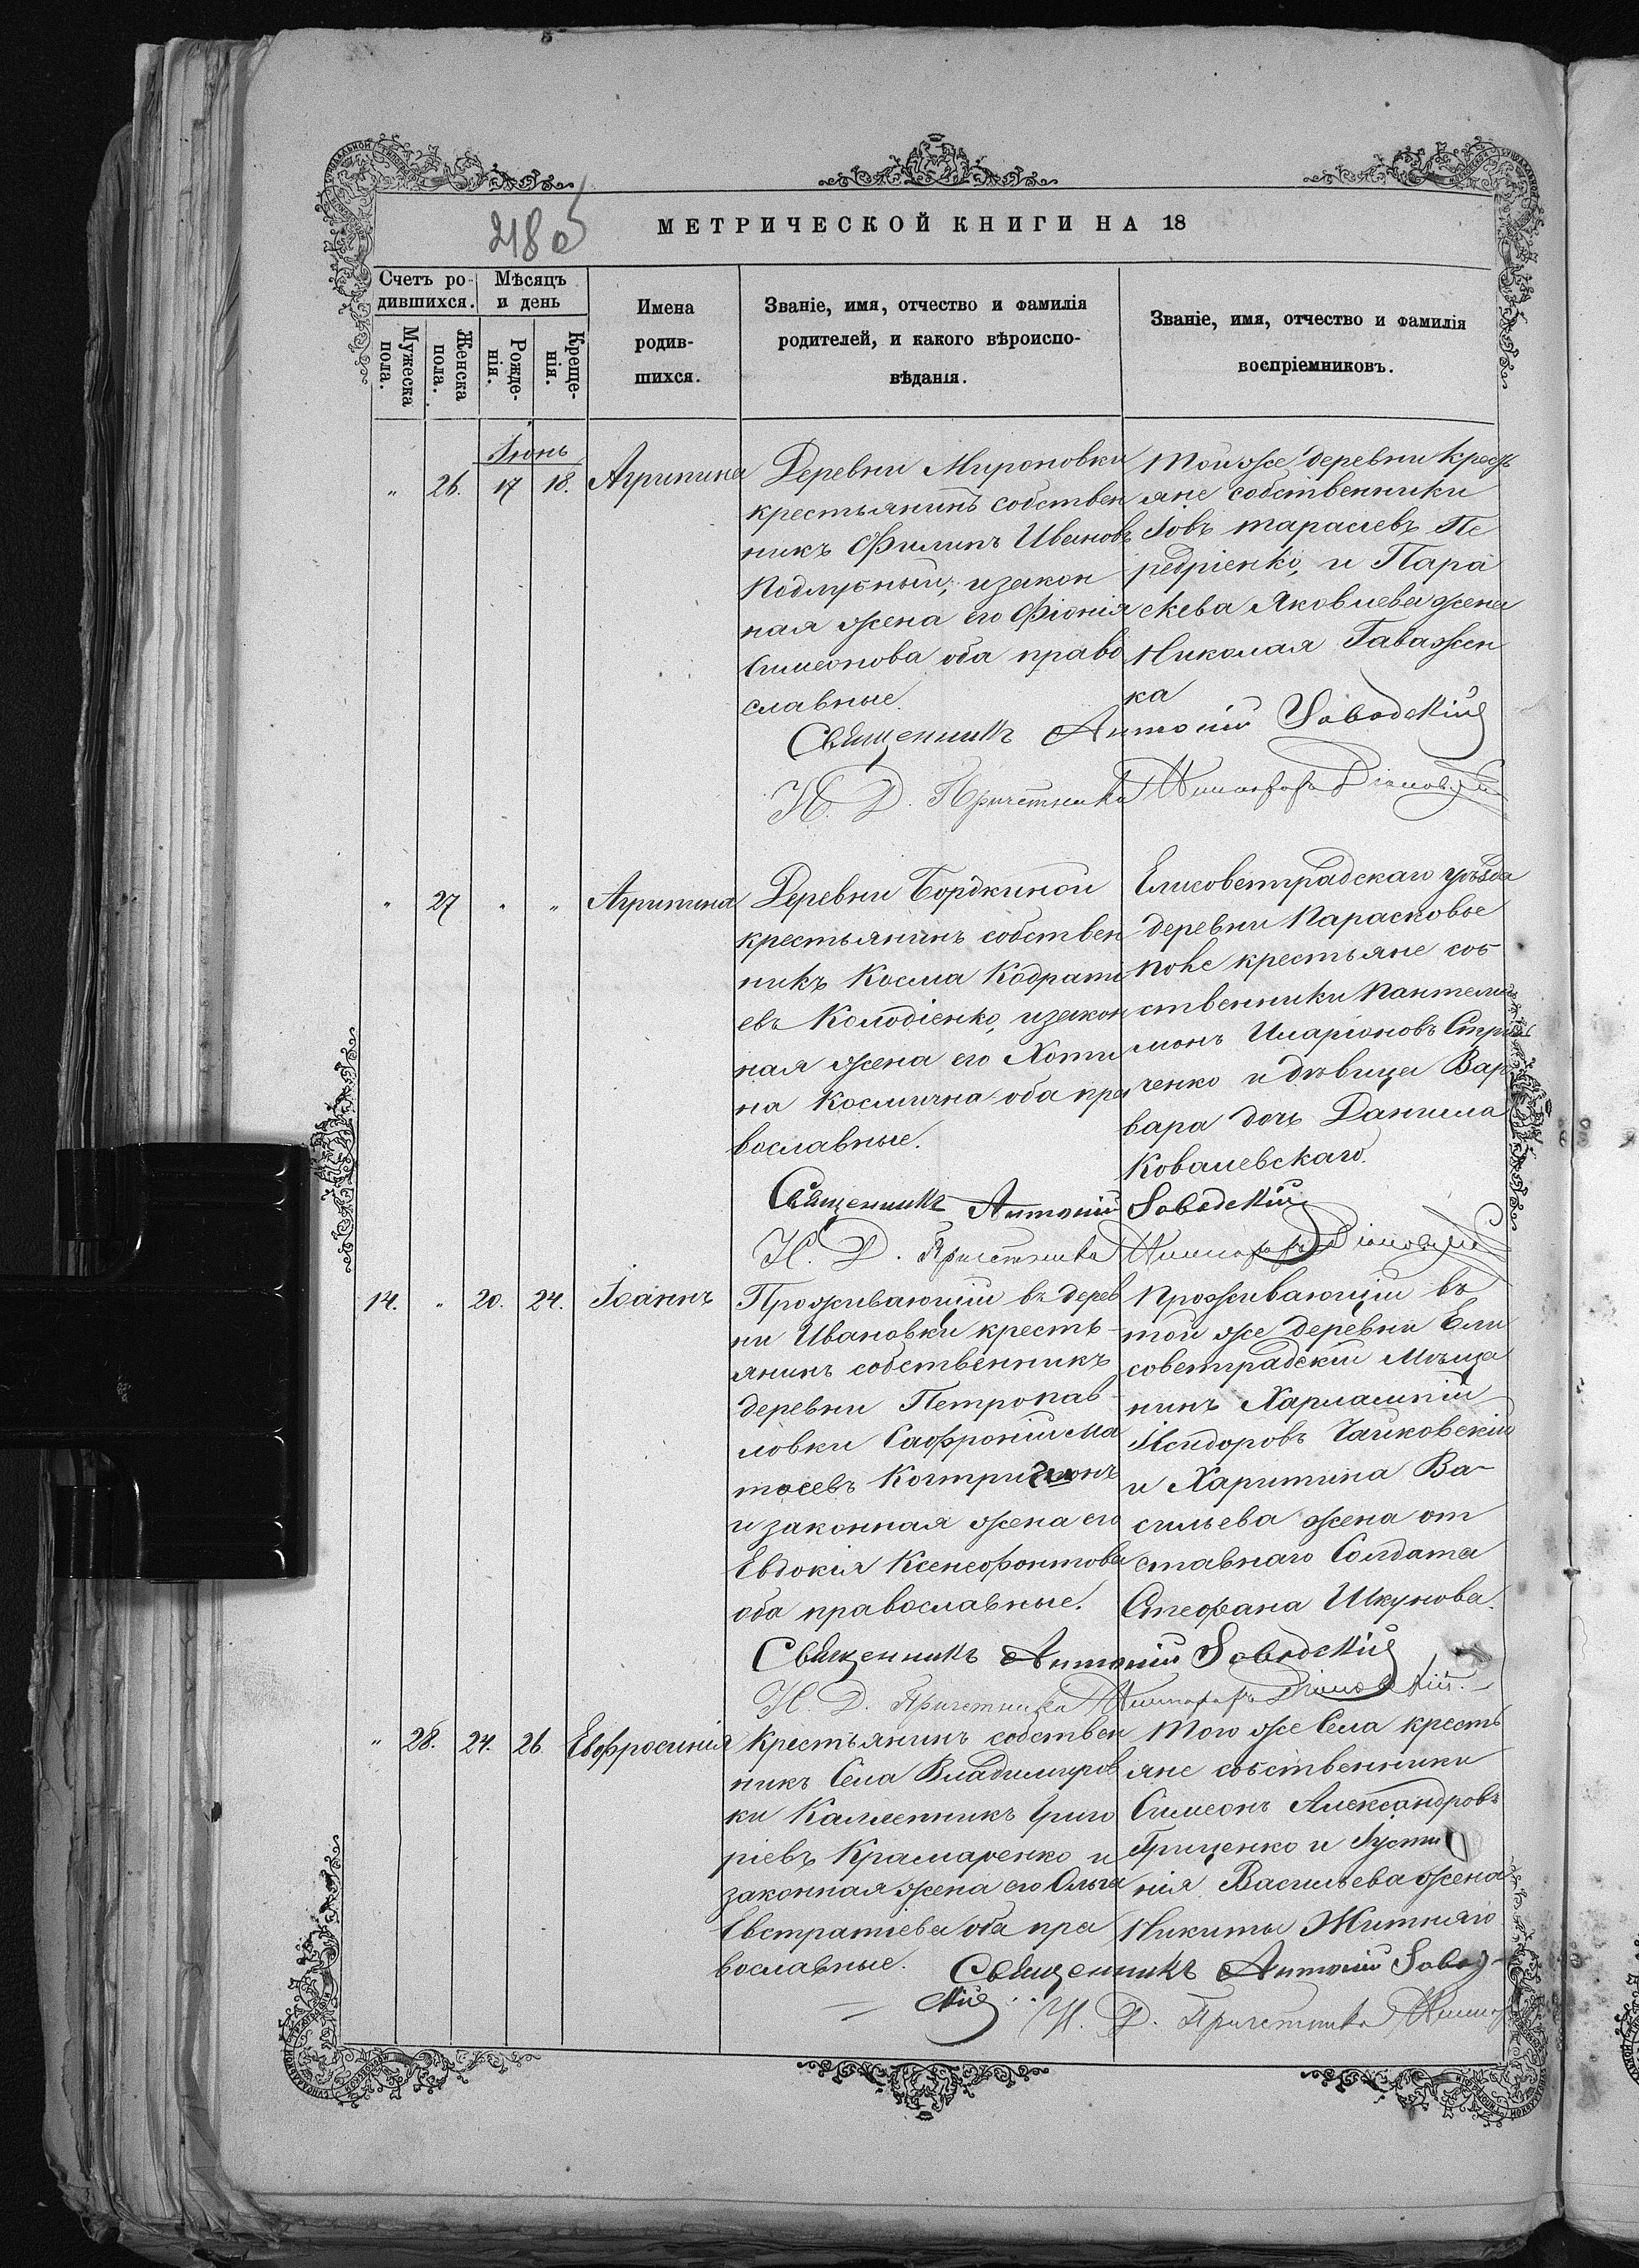 218 об
МЕТРИЧЕСКОЙ КНИГИ НА 18
Счетъ ро-
дившихся.
Мѣсяцъ
и день
Мужеска
пола.
Женска
пола.
Рожде-
нія.
Креще-
нія.
Имена
родив-
шихся.
Званіе, имя, отчество и фамилія
родителей, и какого вѣроиспо-
вѣданія.
Званіе, имя, отчество и фамилія
воспріемниковъ.
Іюнь
" 26. 17 18. Агрипина
Деревни Мироновки
крестьянинъ собствен
никъ Филипъ Ивановъ
Подлужный, изакон
ная жена его Фіонія
Симеонова оба право
славные.
Тойже деревни Кресть
яне собственники
Іовъ тарасіевъ Пе
редріенко, и Пара
скева Яковлева жена
Николая Гаважен
ка
Священникъ Антоній
Н. Д. Причетника
" 27 " " Агрипина
Деревни
крестьянинъ собствен
никъ Косма Кодрати
евъ Колодіенко, изакон
ная жена его Хоти
на Космична оба пра
вославные.
Елисоветградскаго уѣзда
деревни Парасковое
поле крестьяне соб
ственники Пантелей
монъ Иларіоновъ
ченко и дѣвица Вар
вара дочь Данила
Ковалевскаго.
Священникъ Антоній
Н. Д. Причетника
14. " 20. 24. Іоаннъ
Проживающій въ дерев
ни Ивановки кресть-
янинъ собственникъ
деревни Петропав-
ловки Сафроній Ма
тѳеевъ
и законная жена его
Евдокія Ксенофонтова
оба православные.
Проживающій въ
той же деревни Ели
советградскій Мѣща
нинъ Харлампій
Исидоровъ Чайковскій
и Харитина Ва-
сильева жена от
ставнаго Солдата
Стефана Шкунова.
Священникъ Антоній
Н. Д. Причетника
" 28. 24. 26. Евфросинія
Крестьянинъ собствен
никъ Села Владимиров
ки Каллѣнникъ Григо
ріевъ Крамаренко и
законная жена его Ольга
Евстратіева оба пра
вославные.
Того же Села кресть
яне собственники
Симеонъ Александровъ
Гриценко и Іусти
нія Васильева жена
Никиты Житняго
Священникъ Антоній
Н. Д. Причетника